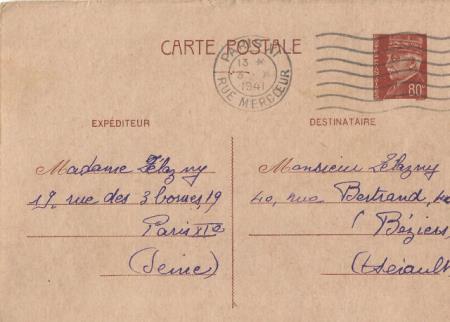 CARTE POSTALE
PARIS XI
13 H
1941
RUE MERCŒUR
80c
EXPÉDITEUR
Madame Zélazny
19, rue des 3 bornes, 19
Paris XIe
(Seine)
DESTINATAIRE
Monsieur Zélazny
40, rue Bertrand,
Béziers
(Hérault